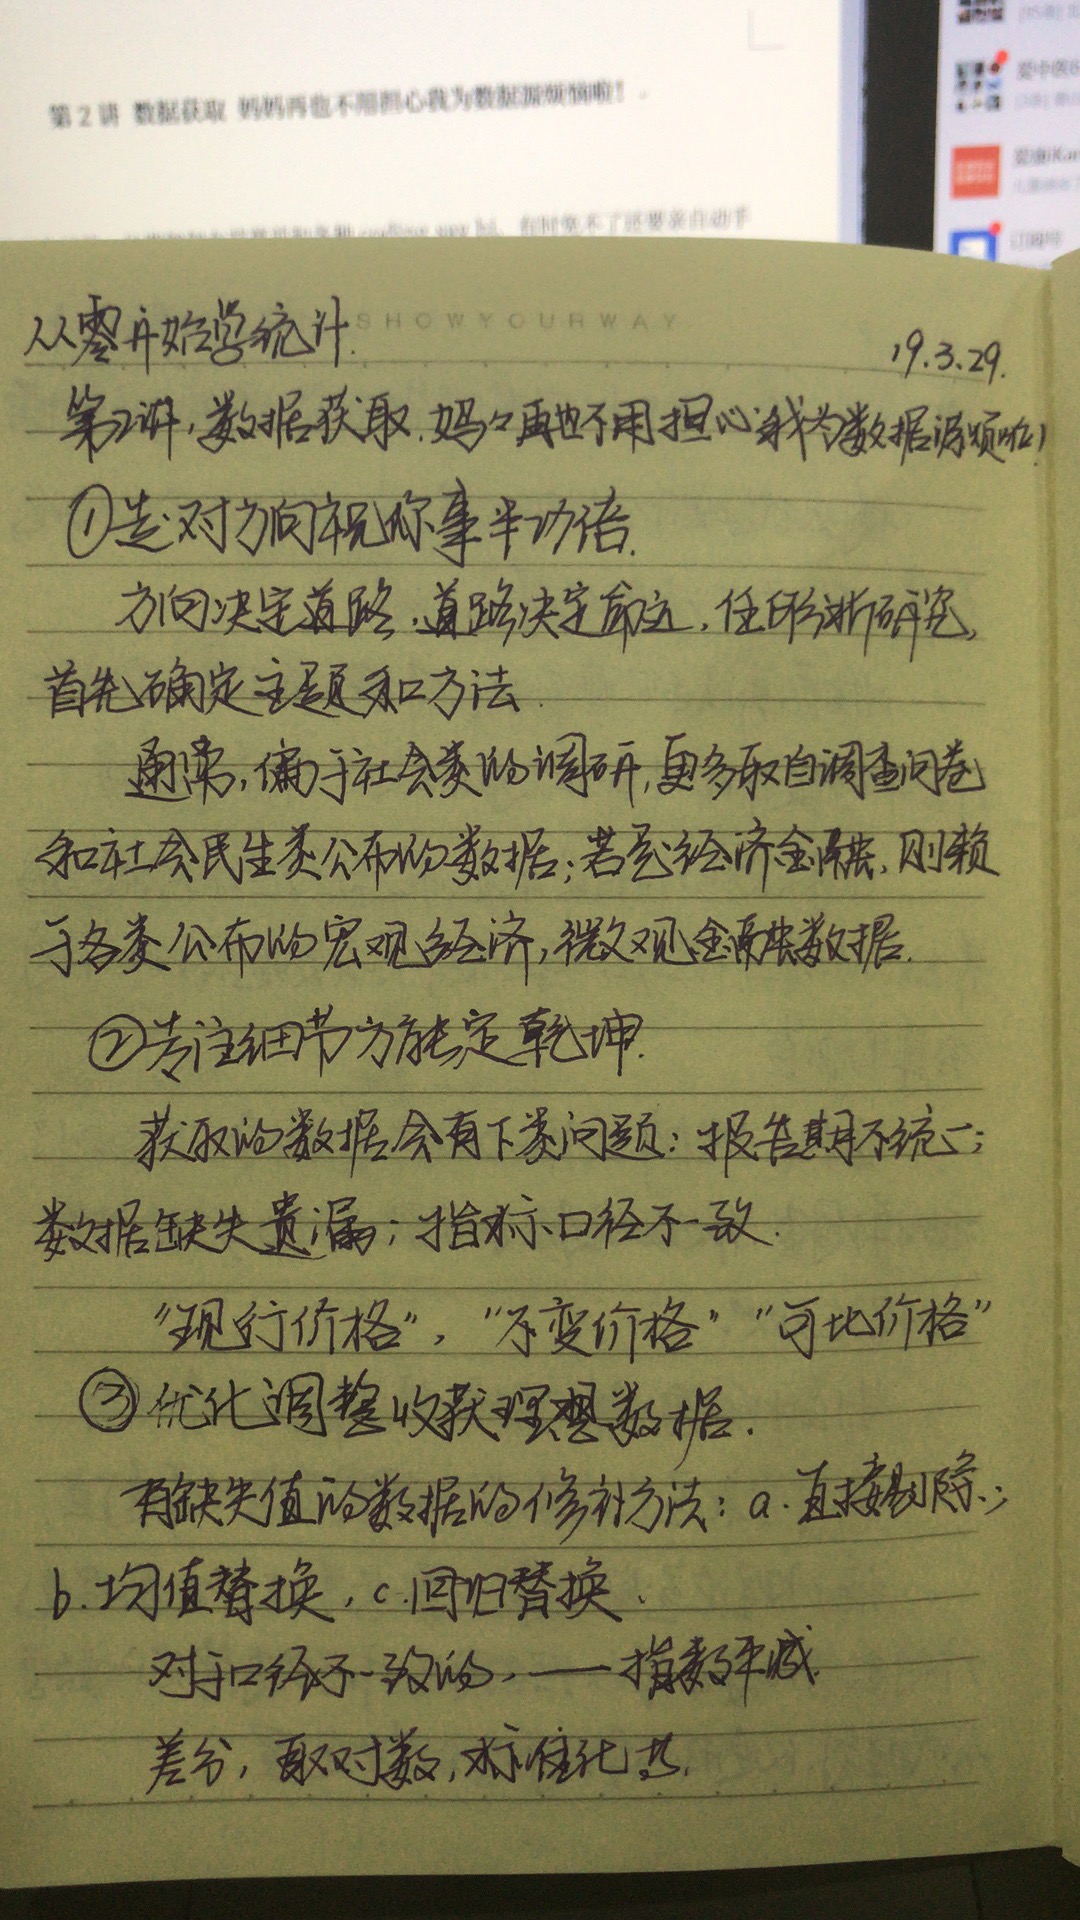 第 2 讲 数据获取 妈妈再也不用担心我为数据源烦恼啦！
SHOWYOURWAY
从零开始学统计.
19.3.29.
第2讲, 数据获取. 妈々再也不用担心我为数据源烦啦!
①选对方向祝你事半功倍.
方向决定道路, 道路决定命运, 任何分析研究,
首先确定主题和方法.
通常, 偏于社会类的调研, 更多取自调查问卷
和社会民生类公布的数据; 若是经济金融, 则赖
于各类公布的宏观经济, 微观金融类数据.
②专注细节方能定乾坤.
获取的数据会有下类问题: 报告期不统一;
数据缺失遗漏; 指标口径不一致.
"现行价格", "不变价格" "可比价格"
③优化调整收获理想数据.
有缺失值的数据的修补方法: a. 直接剔除;
b. 均值替换, c. 回归替换.
对于口径不一致的, —— 指数平减.
差分, 取对数, 标准化